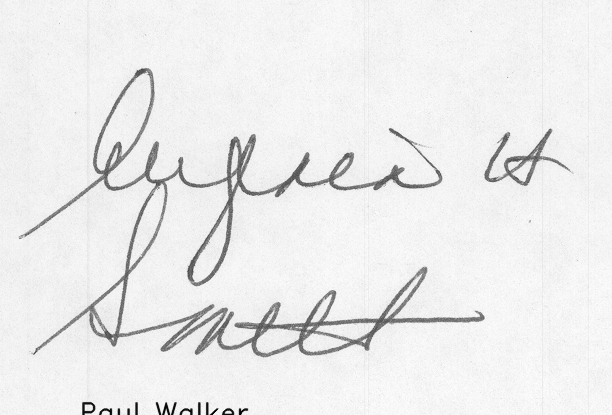 Eugenia H
Smith
Paul Walker